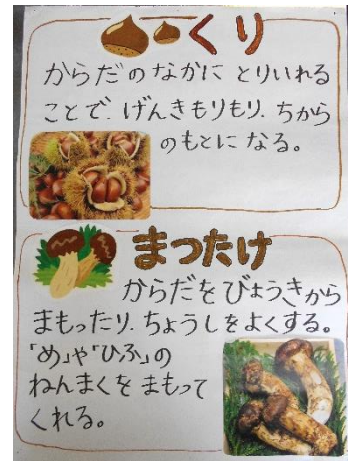 くり
からだのなかに とりいれる
ことで、げんきもりもり、ちから
のもとになる。
まつたけ
からだをびょうきから
まもったり、ちょうしをよくする。
「め」や「ひふ」の
ねんまくを まもって
くれる。